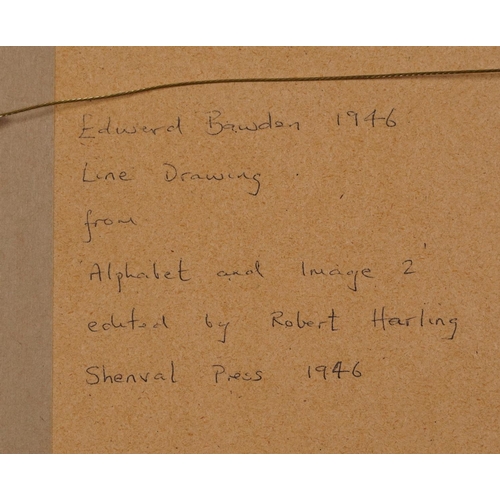 Edward Bawden 1946
Line Drawing.
from
'Alphabet and Image 2'
edited by Robert Harling
Shenval Press 1946